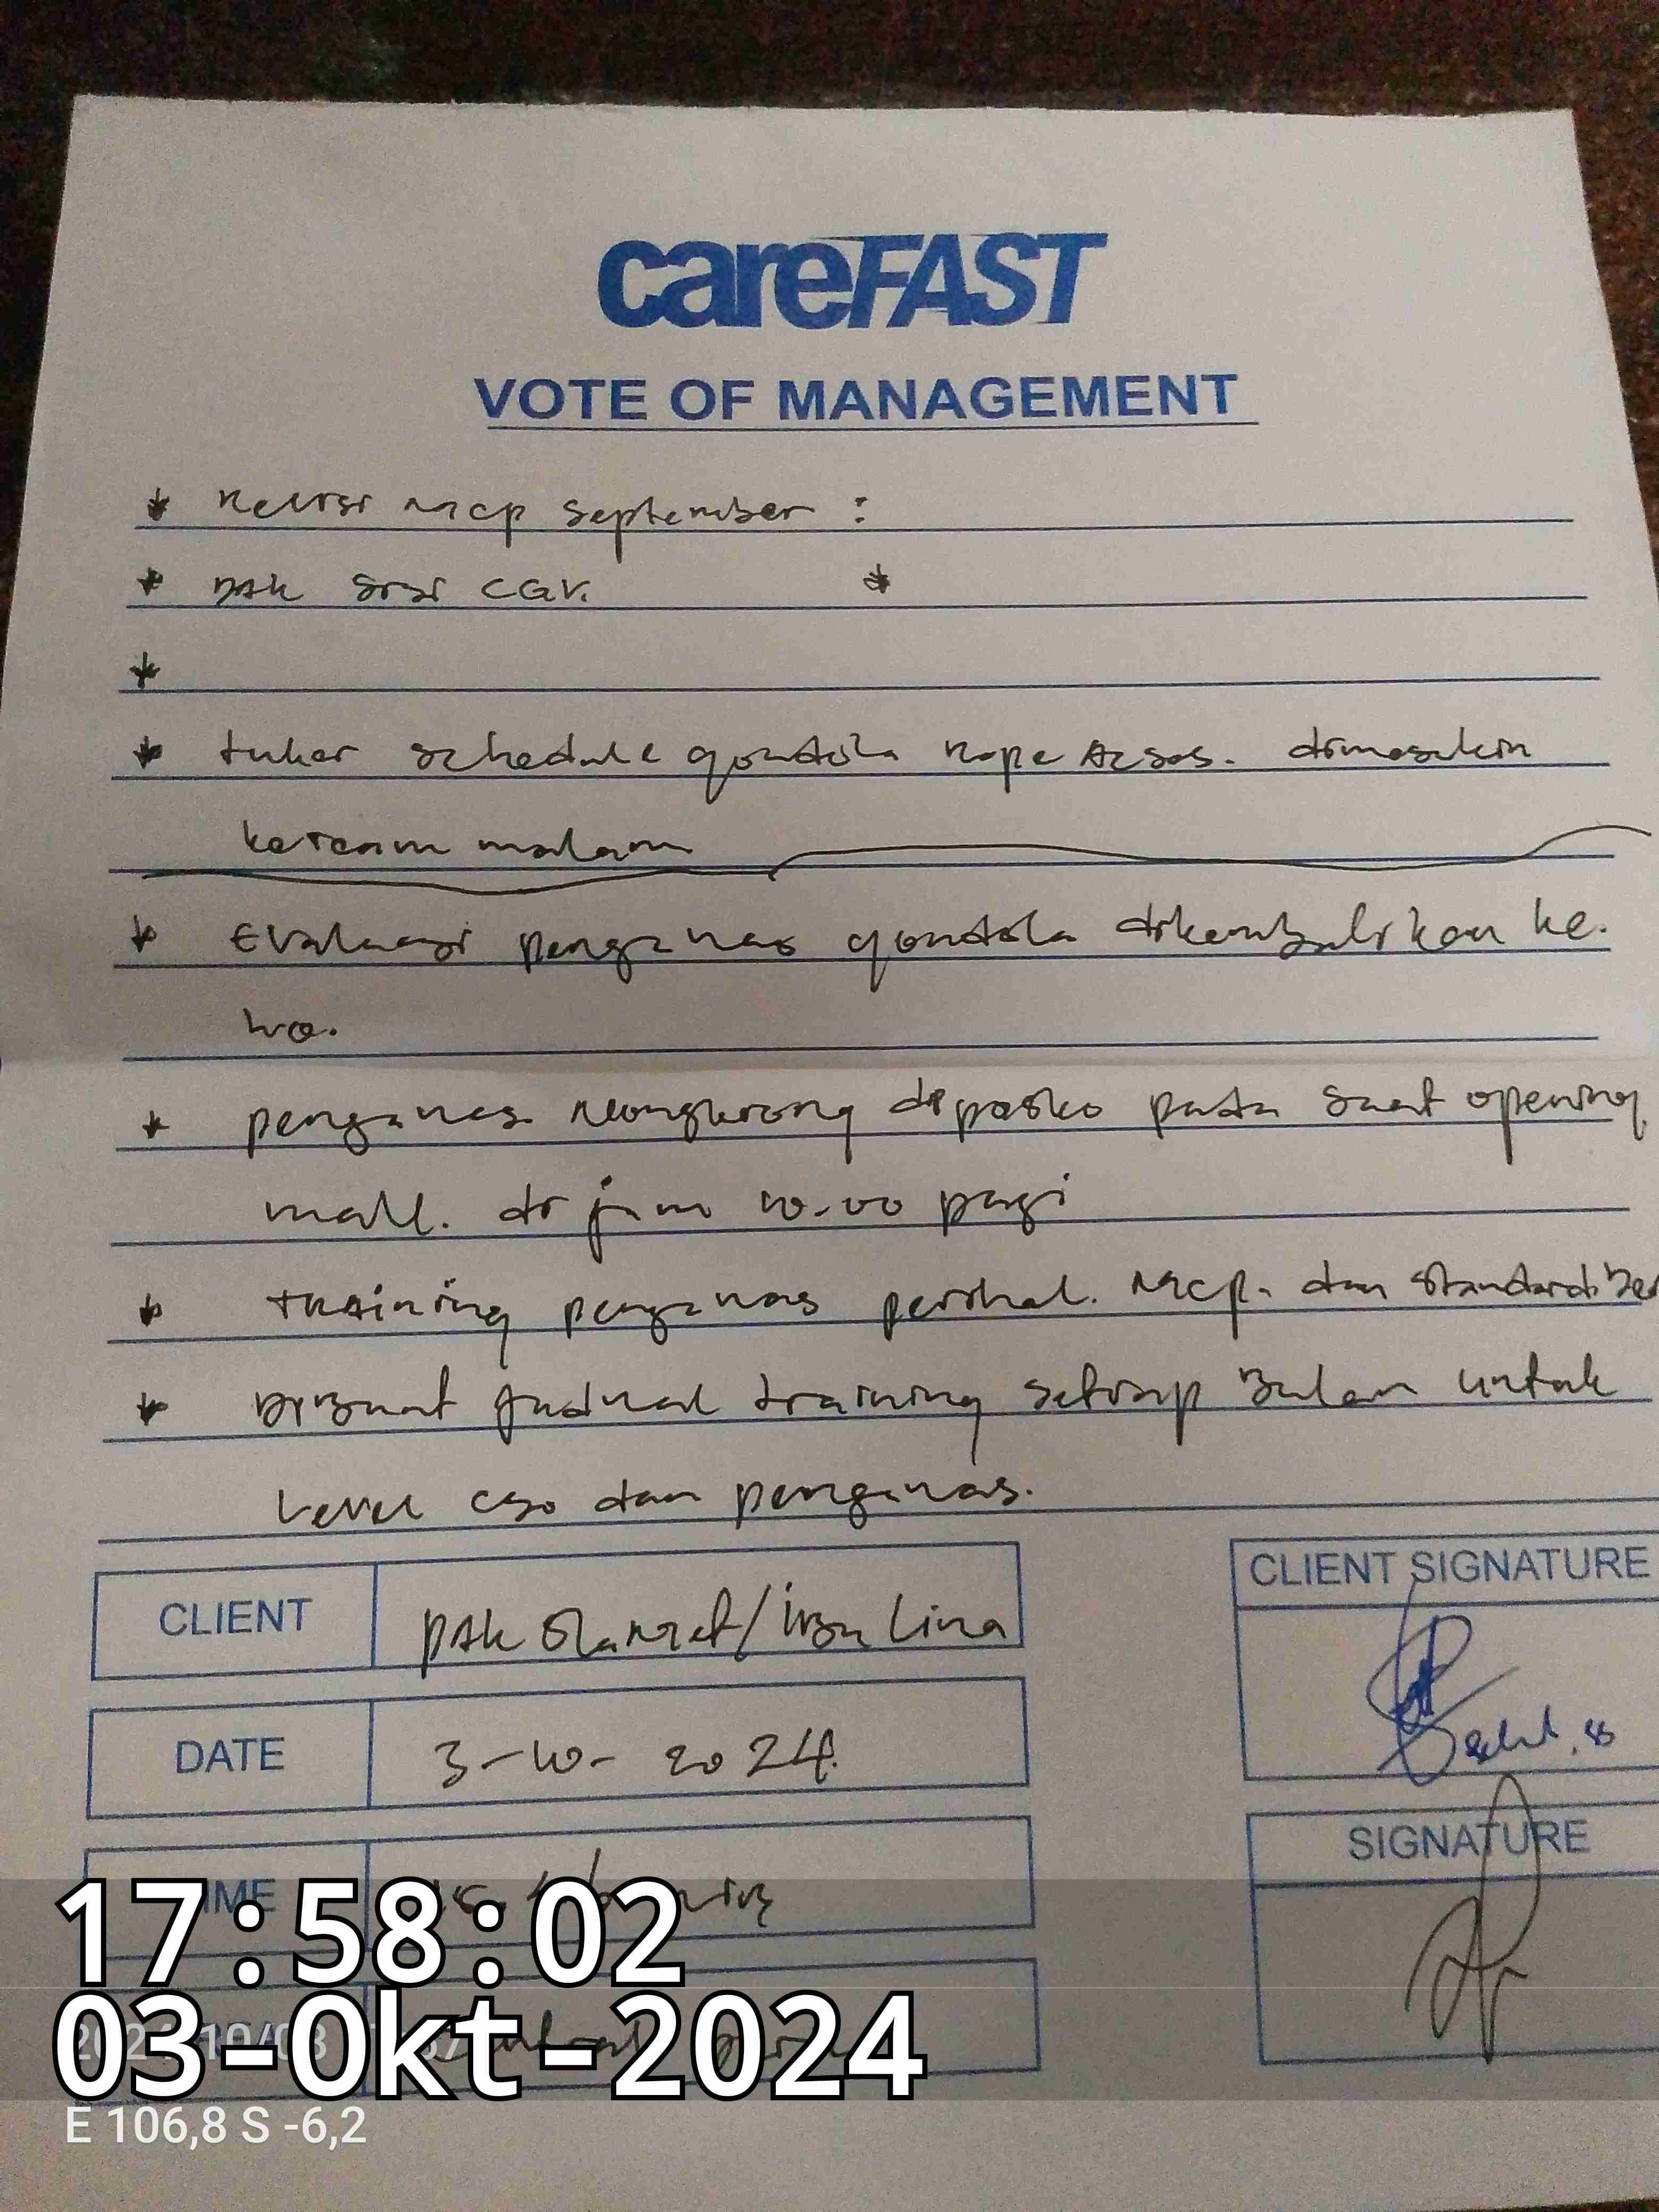 careFAST
VOTE OF MANAGEMENT
* Revisi MCP September :
* DAK sisi CGV. *
*
* tuker schedule gondola Rope Acsos. dimasukin
keteam malam
* Evaluasi pengawas gondola dikembalikan ke.
ho.
* pengawas. Nongkrong diposko pada saat opening
mall. di jam 10.00 pagi
* Training pengawas perihal. MCP. dan Standard
* Dibuat jadwal training setiap Bulan untuk
Level CSO dan pengawas.
CLIENT
pak Slamet/ibu Lina
CLIENT SIGNATURE
DATE
3-10-2024.
SIGNATURE
17:58:02
03-Okt-2024
E 106,8 S -6,2